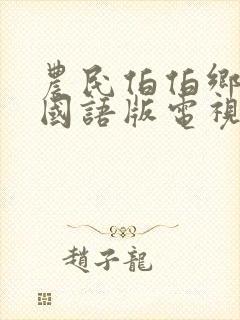 農民伯伯鄉
國語版電視
趙子龍